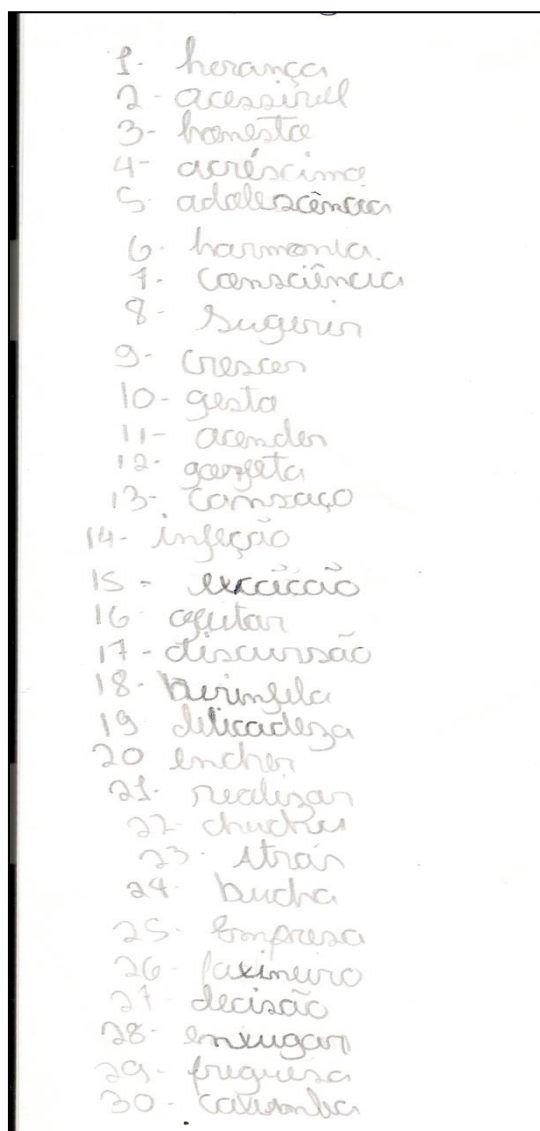 1- herança
2- acessivel
3- honesta
4- acréscimo
5- adolescência
6- harmonia.
7- consciência
8- sugerir
9- crescer
10- gesto
11- acender
12- gorgeta
13- cansaço
14- infeção
15-
16- agitar
17- discursão
18- biringela
19 delicadeza
20 encher
21- realizar
22- chuchu
23- atrás
24- bucha
25- empresa
26- faxineiro
27- decisão
28- enxugar
29- freguesa
30-